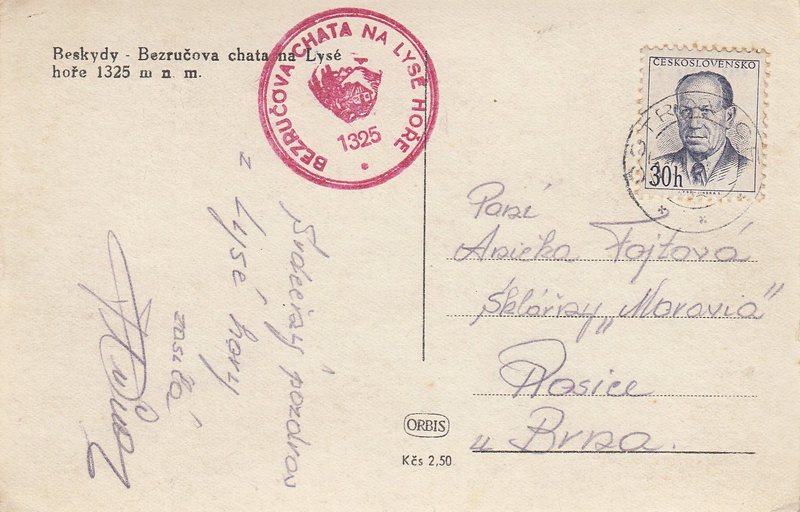 Beskydy - Bezručova chata na Lysé
hoře 1325 m n m.
BEZRUČOVA CHATA NA LYSÉ HOŘE
1325
ČESKOSLOVENSKO
30h
Srdečný pozdrav
z
Lysé hory
zasílá
Paní
Anička Fojtová
Sklárny „Moravia"
Rosice
u Brna.
ORBIS
Kčs 2,50